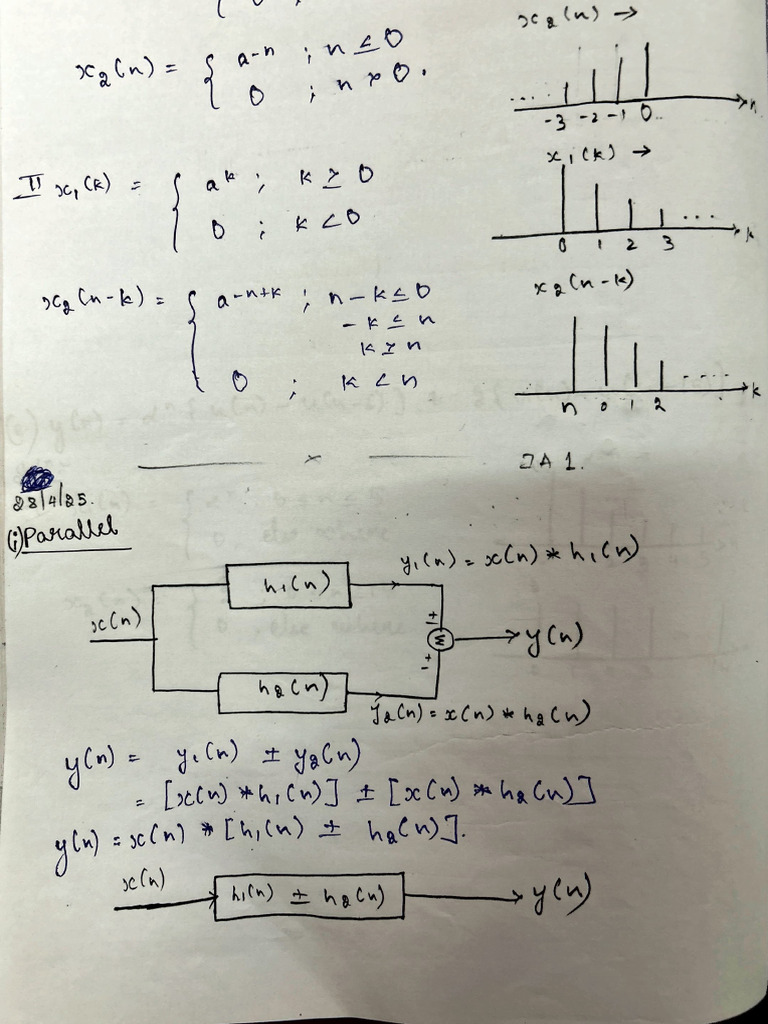 x₂(n) →
x₂(n) = { a⁻ⁿ ; n ≤ 0
0 ; n > 0.
.... -3 -2 -1 0.. n
x₁(k) →
II x₁(k) = { aᵏ ; k ≥ 0
0 ; k < 0
0 1 2 3 ... k
x₂(n-k)
x₂(n-k) = { a⁻ⁿ⁺ᵏ ; n-k ≤ 0
-k ≤ n
k ≥ n
0 ; k < n
n 0 1 2 .... k
x IA 1.
28/4/25.
(i) Parallel
y₁(n) = x(n) * h₁(n)
h₁(n)
x(n)
±
Σ → y(n)
±
h₂(n)
y₂(n) = x(n) * h₂(n)
y(n) = y₁(n) ± y₂(n)
= [x(n) * h₁(n)] ± [x(n) * h₂(n)]
y(n) = x(n) * [h₁(n) ± h₂(n)].
x(n)
h₁(n) ± h₂(n) → y(n)